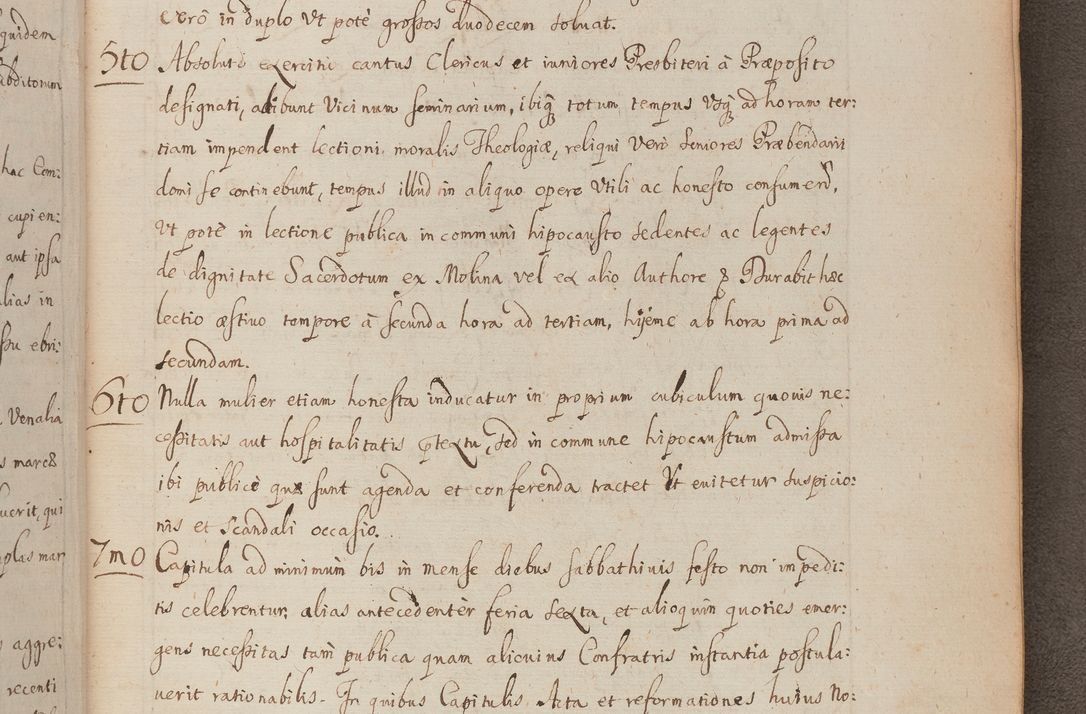 quidem
abditorum
hac Com:
cupien:
aut ipsa
alias in
ssu ebri:
Venalia
s marc8
uerit, qui
plas mar
aggre:
recenti
Verò in duplo Vt potè grossos duodecem soluat.
5to Absoluto exercitii cantus Clericus et iuniores Presbiteri à Præposito
designati, adibunt Vicinum seminarium, ibiq totum tempus Vsq ad horam ter:
tiam impendent lectioni moralis Theologiæ, reliqui Verò Seniores Præbendarii
domi se continebunt, tempus illud in aliquo opere Vtili ac honesto consumend,
Vt potè in lectione publica in communi hipocausto sedentes ac legentes
de dignitate Sacerdotum ex Molina vel ex alio Authore & Durabit hæc
lectio æstiuo tempore à secunda hora ad tertiam, hijeme ab hora prima ad
secundam.
6to Nulla mulier etiam honesta inducatur in proprium cubiculum quouis ne:
cessitatis aut hospitalitatis ptextu, sed in commune hipocaustum admissa
ibi publicè quæ sunt agenda et conferenda tractet Vt euitetur suspicio:
nis et scandali occasio.
7mo Capitula ad minimum bis in mense diebus sabbathinis festo non impedi:
tis celebrentur, alias antecedenter feria sexta, et alioquin quoties emer:
gens necessitas tam publica quam alicuius Confratris instantia postula:
uerit rationabilis. In quibus Capitulis Acta et reformationes huius No: